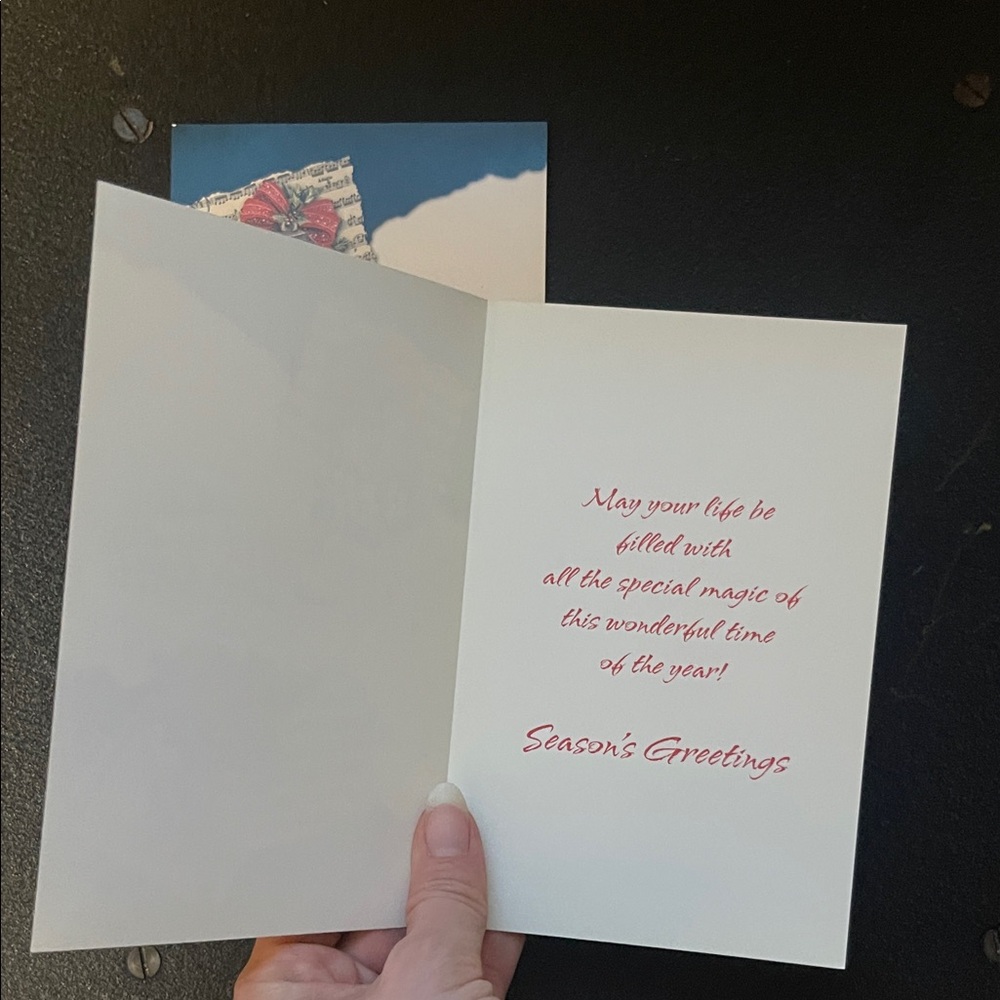 May your life be
filled with
all the special magic of
this wonderful time
of the year!
Season's Greetings